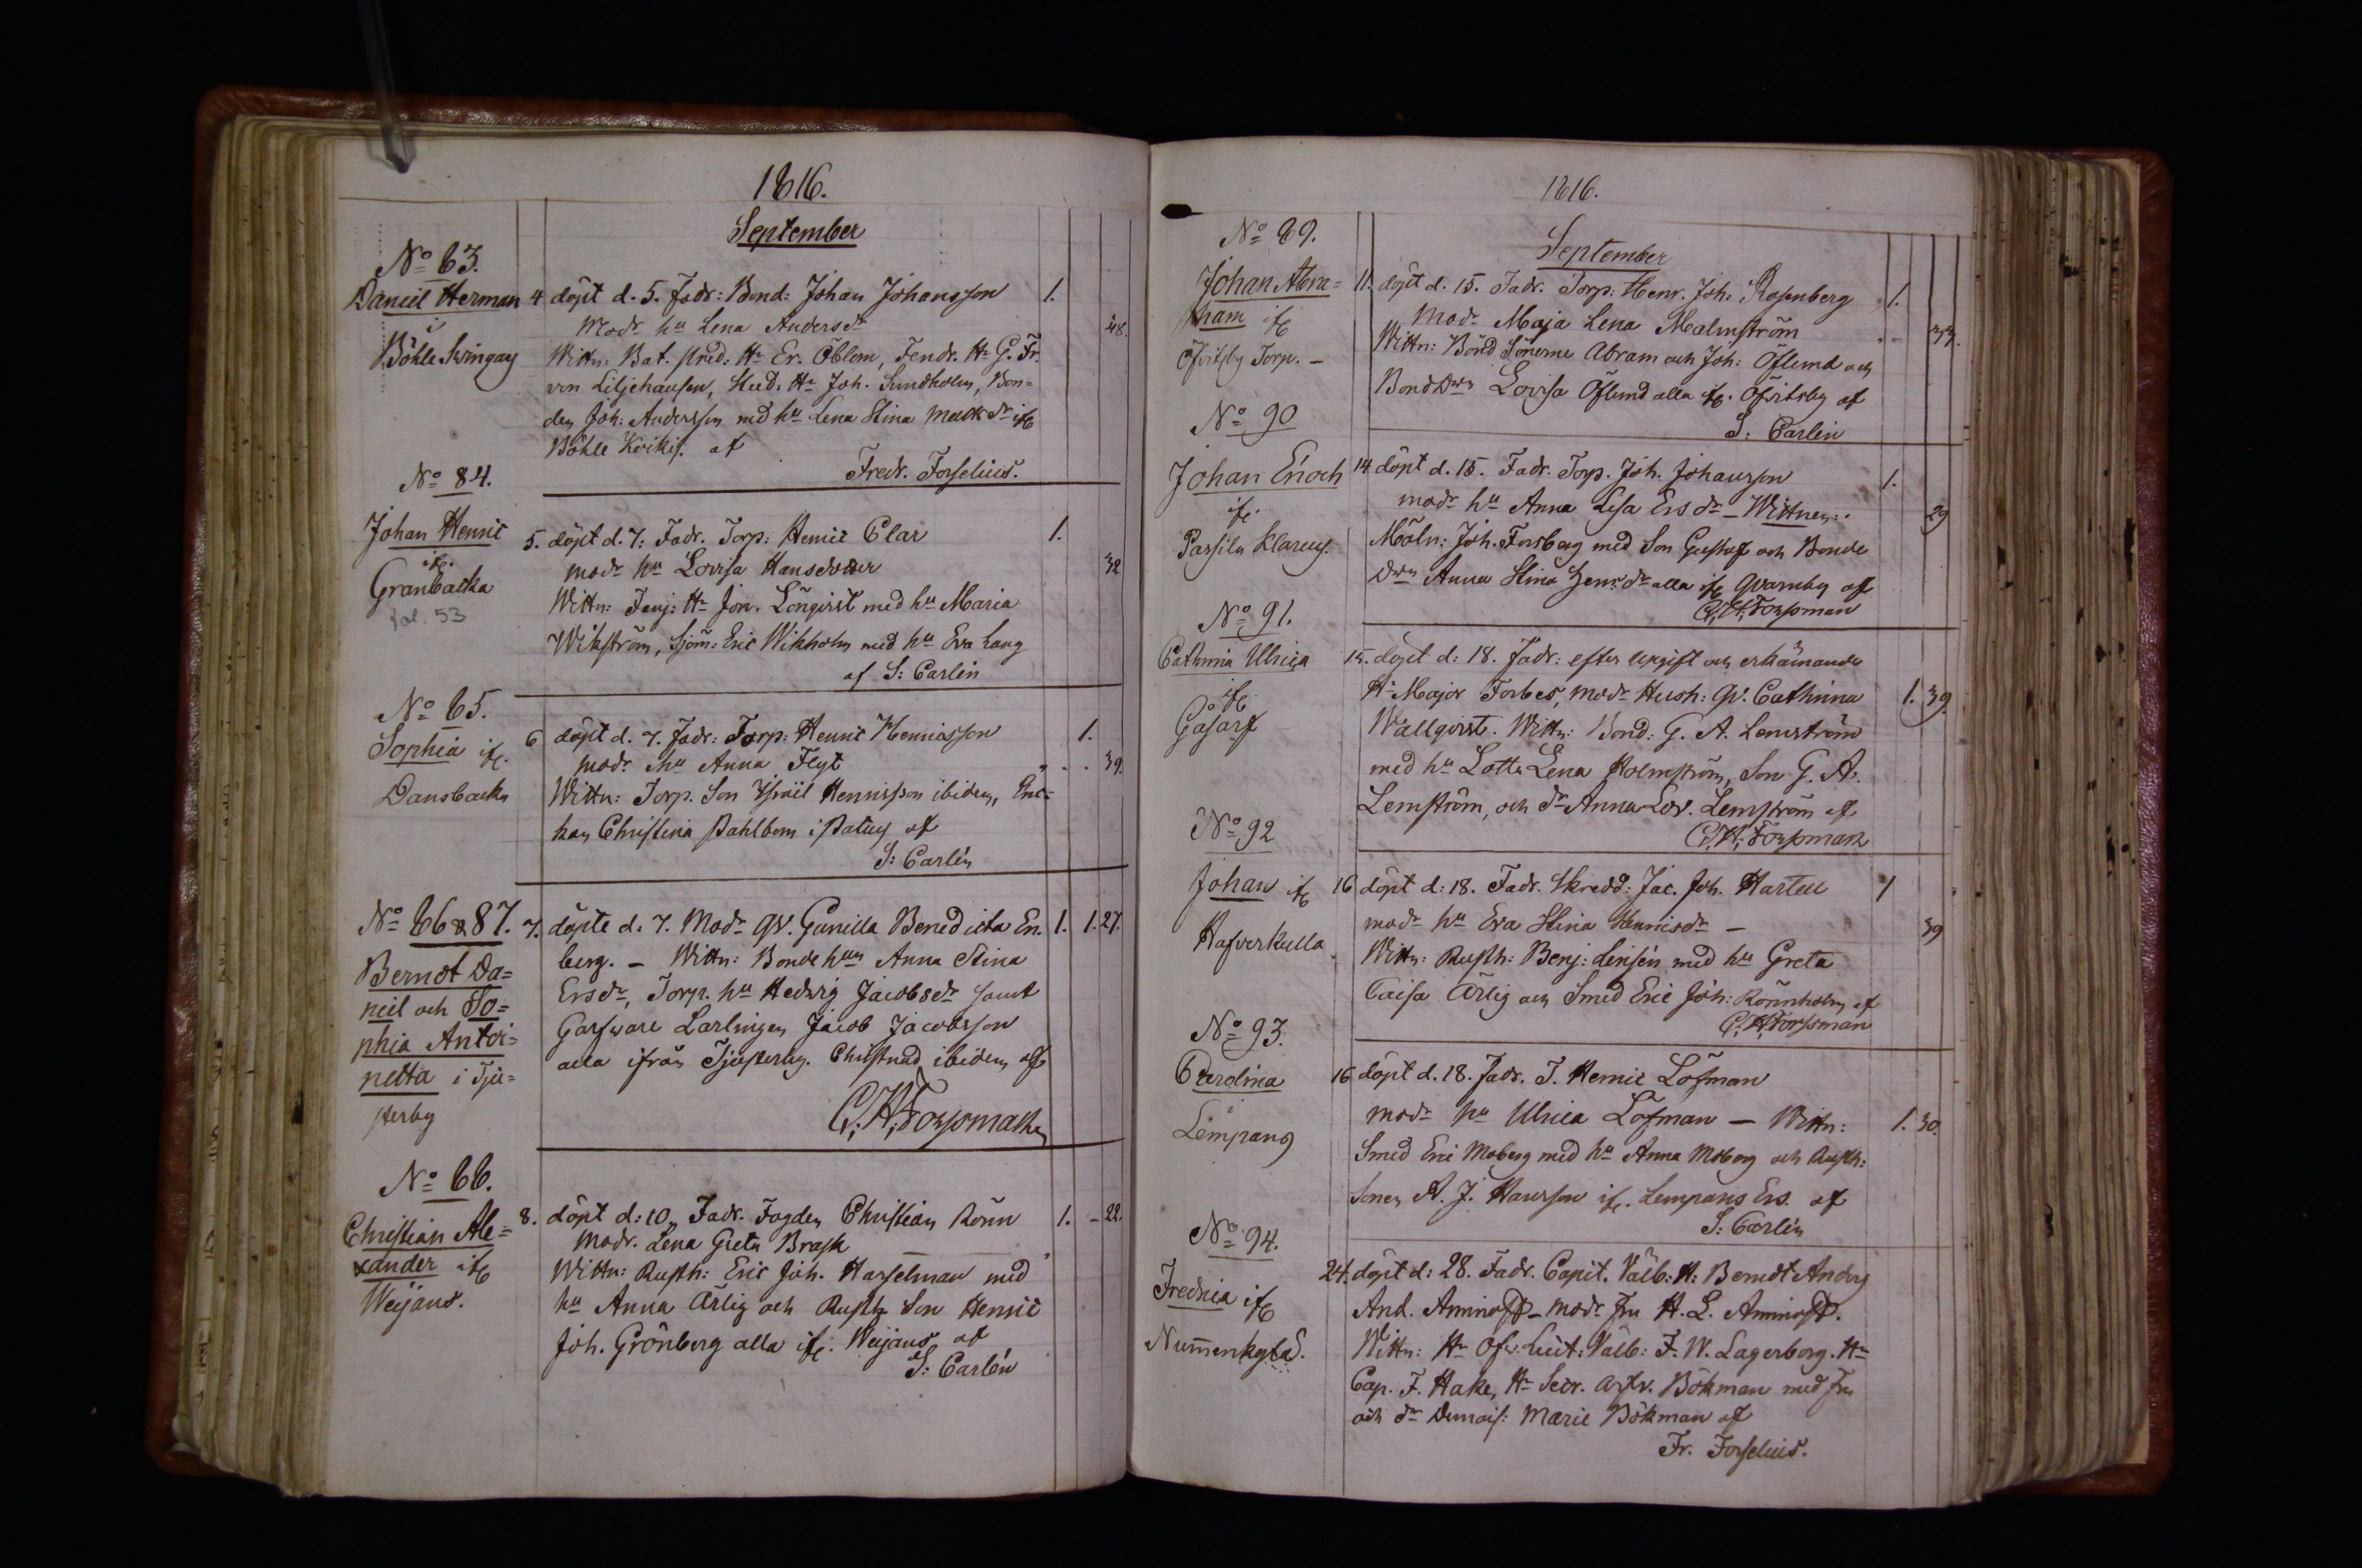 1816.
September
No 83.
Daniel Herman
i
Böhle Svingars
4 döpt d. 5. Fadr: Bond: Johan Johansson 1.
Modr hu Lena Andersdr 48.
Wittn: Bat. pred: Hr Er. Öblom, Fendr. Hr G. Fr.
von Liljehausen, Stud: Hr Joh. Sundholm, Bon=
den Joh: Andersson med hu Lena Stina dr ifr
Böhle Kvikis. af
Fredr. Forselius.
No 84.
Johan Henric
ifr.
Granbacka
fol. 53
5. döpt d. 7. Fadr. Torp: Henric Clar 1.
modr hu Lovisa Hansdotter 32
Wittn: Fanj: Hr Jon. Lönqvist med hu Maria
Wikström, Sjöm: Eric Wikholm med hu Eva Lang
af S: Carlén
No 85.
Sophia ifr.
Dansbacka
6 döpt d. 7. Fadr: Torp: Henric Henricsson 1.
modr. hu Anna Flyt 39.
Wittn: Torp. Son Israël Henricsson ibidem, Enc=
kan Christina Dahlbom i af
S: Carlén
No 86 & 87.
Berndt Da=
niel och So=
phia Antoi=
netta i Tju=
sterby
7. döpte d. 7. Modr Qv. Gunilla Benedicta En. 1. 1. 27.
berg. – Wittn: Bonde hun Anna Stina
Ersdr, Torp. hu Hedvig Jacobsdr samt
Garfware Lärlingen Jacob Jacobsson
alla ifrån Tjusterby. Christnad ibidem af
C. H. Forssman
No 88.
Christian Ale=
xander ifr
Weijans.
8. döpt d: 10. Fadr. Fogden Christian Rönn 1. – 22.
Modr. Lena Greta Brask
Wittn: Rusth: Eric Joh. Hasselman med
hu Anna Ärlig och Rusth Son Henric
Joh. Grönberg alla ifr. Weijans af
S: Carlén
1816.
September
No 89.
Johan Abra=
ham ifr
Öfvitsby Torp. –
11. döpt d. 15. Fadr. Torp: Henr. Joh. Rosenberg 1.
Modr Maja Lena Malmström 33.
Wittn: Bond Sönerne Abram och Joh: Öflund och
BondDrn Lovisa Öflund alla ifr. Öfvitsby af
S: Carlén
No 90
Johan Enoch
ifr.
Passila Klareus.
14 döpt d. 15. Fadr. Torp. Joh. Johansson 1.
modr hu Anna Lisa Ersdr – Wittnen: 29
Möln: Joh. Forsberg med Son Gustaf och Bonde
Drn Anna Stina Henr: dr alla ifr Qvarnby af
C. H. Forssman
No 91.
Cathrina Ulrica
ifr.
Gåsarf
15. döpt d: 18. Fadr: efter uppgift och erkännande
Hr Major Forbes, modr Hush: Qv. Cathrina 1. 39.
Wallqvist. Wittn: Bond: G. A. Lemström
med hu Lotta Lena Holmström, Son G. A.
Lemström, och dr Anna Lov. Lemström af
C. H. Forssman
No 92
Johan ifr
Hafverkulla
16 döpt d: 18. Fadr. Skredd: Jac. Joh. Hartell 1
modr hu Eva Stina Henricsdr – 39
Wittn: Rusth: Benj: Linsén med hu Greta
Caisa Ärlig och Smed Eric Joh: Rönnholm af
C. H. Forssman
No 93.
Carolina
i
Lempans
16 döpt d. 18. Fadr. T. Henric Löfman
modr hu Ulrica Löfman – Wittn: 1. 30.
Smed Eric Moberg med hu Anna Moberg och Rusth:
Sonen A. J. Hansson ifr. Lempans Ers. af
S: Carlén
No 94.
Fredrica ifr
Nummenkylä S.
24. döpt d: 28. Fadr. Capit. Välb: H: Berndt Anders
And. Aminoff – modr fru H. L. Aminoff.
Wittn: Hr Öfv: Leut: Välb: F. W. Lagerborg. Hr
Cap. F. Hake, Hr Secr. Bökman med fru
och dr Demois: Marie Bökman af
Fr. Forselius.